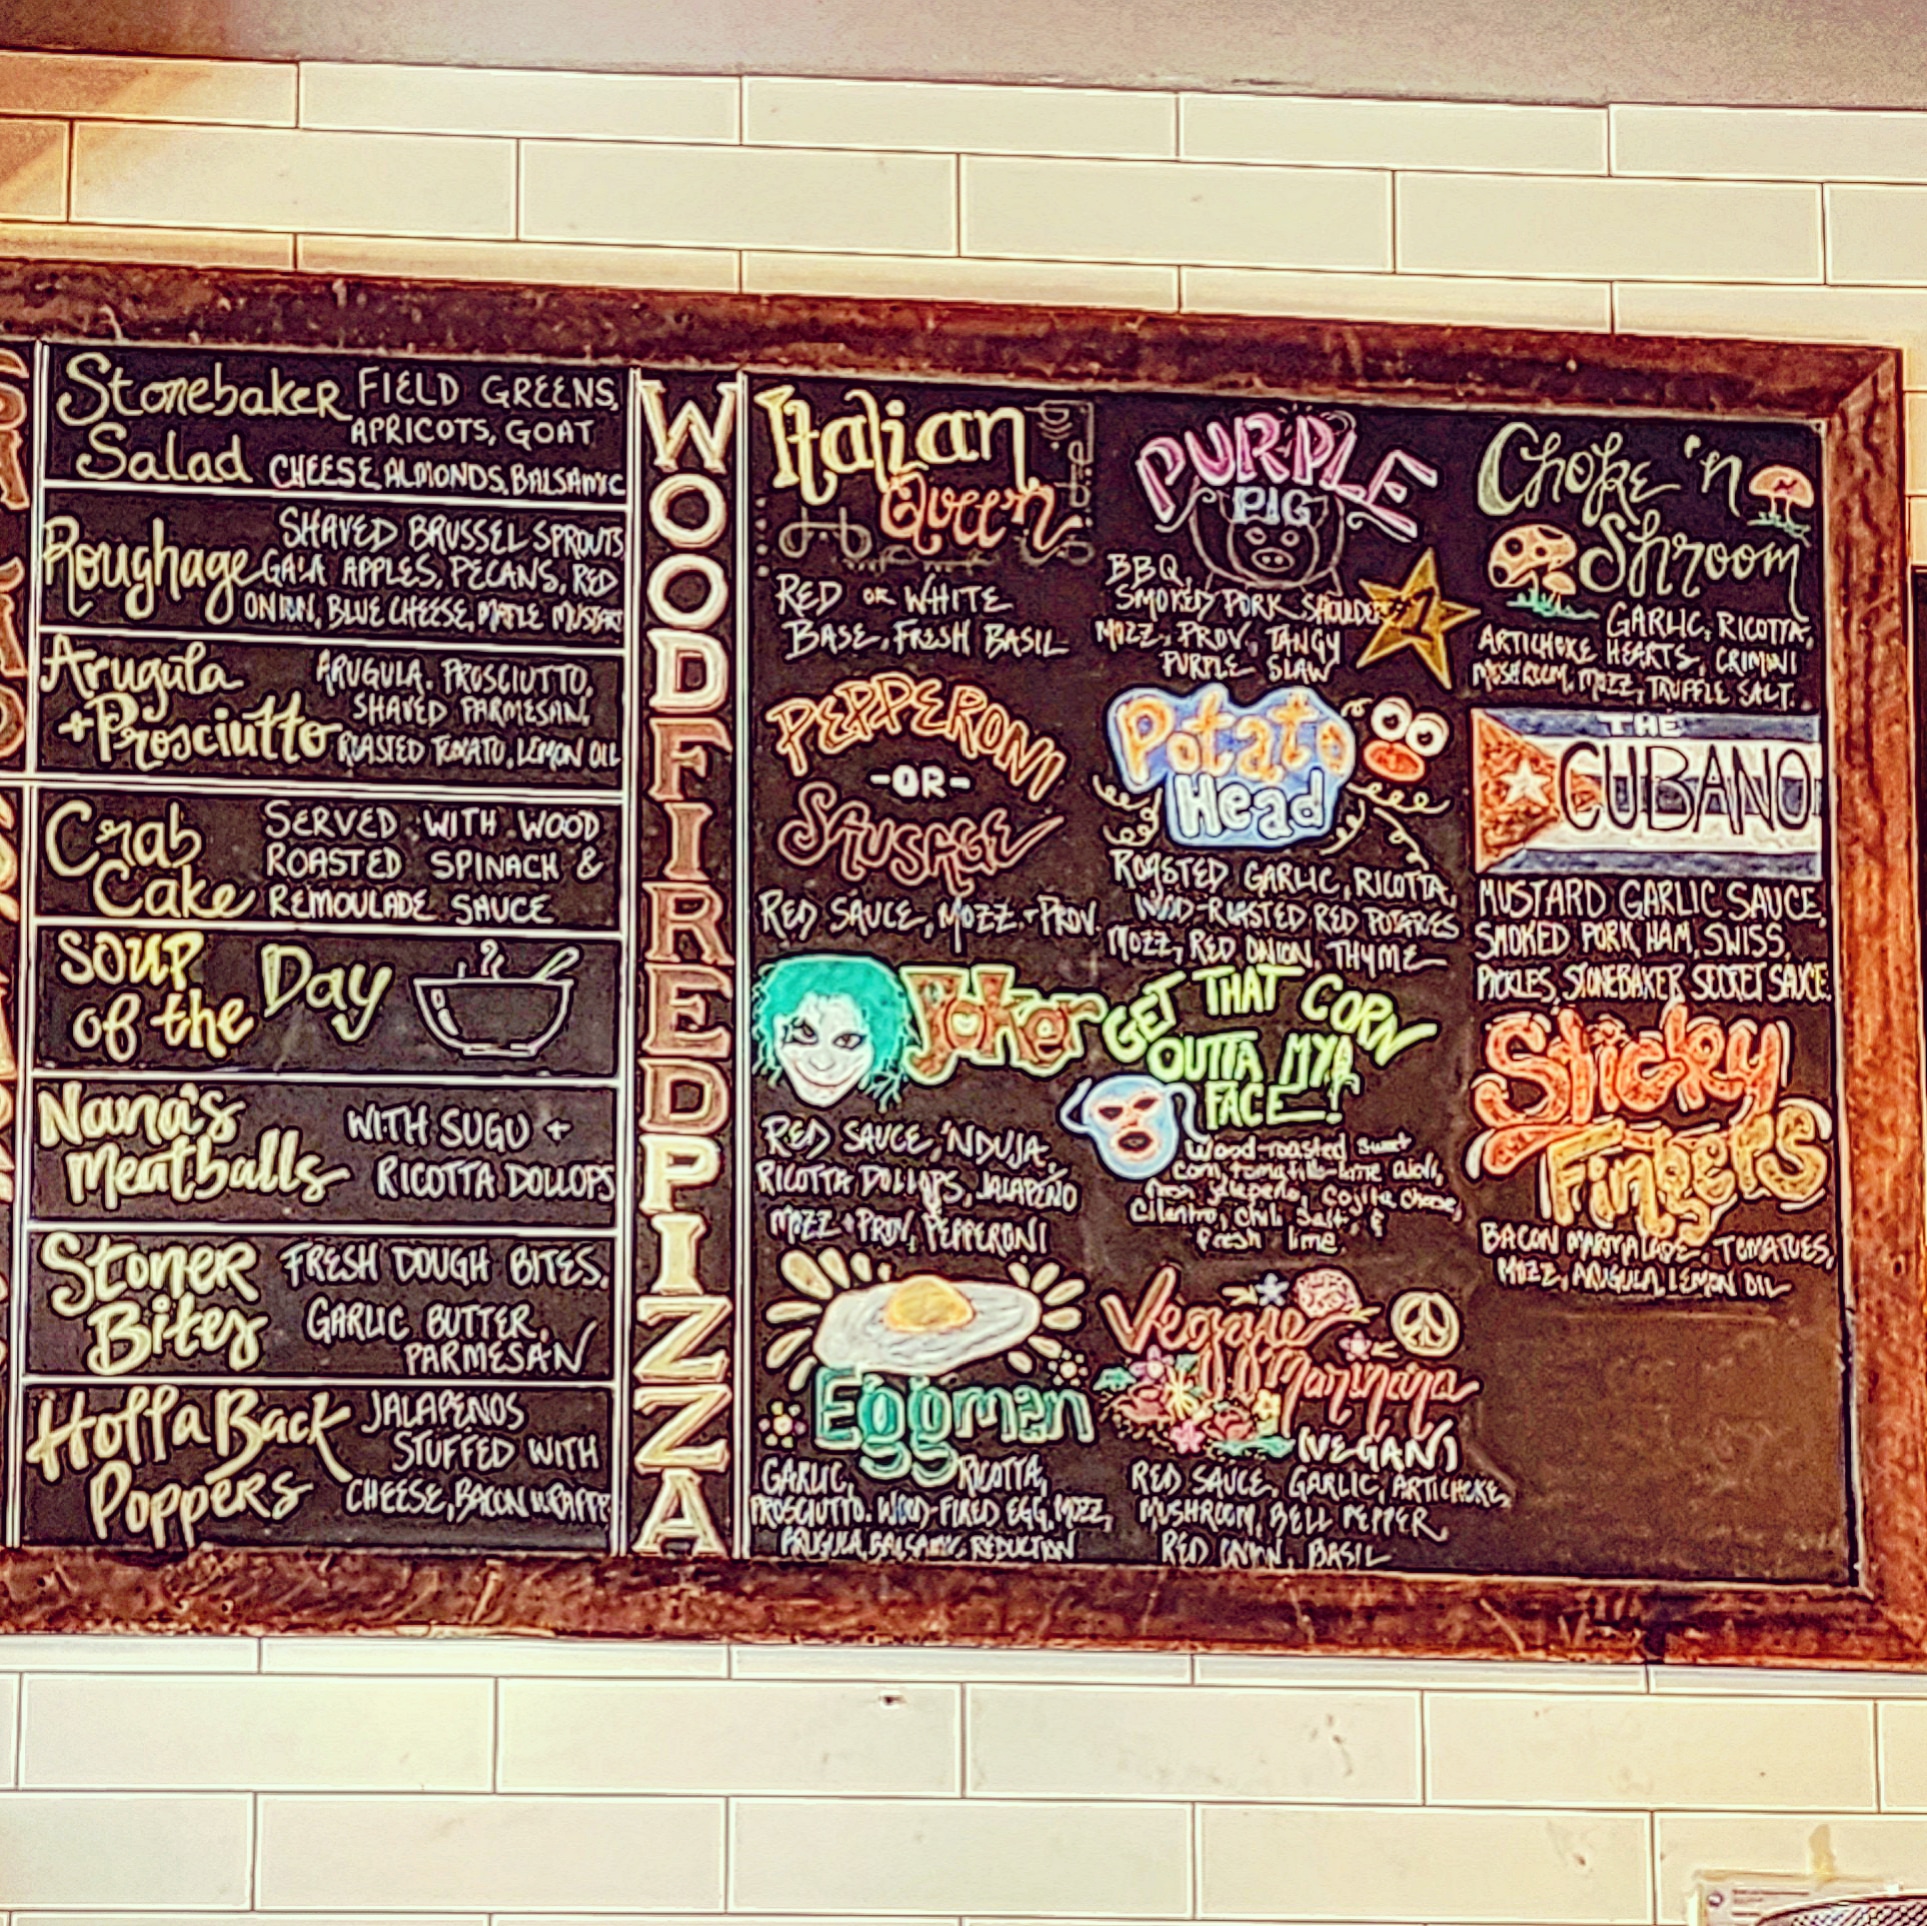 Stonebaker
Salad
FIELD GREENS,
APRICOTS, GOAT
CHEESE, ALMONDS, BALSAMIC
Roughage
SHAVED BRUSSEL SPROUTS
GALA APPLES, PECANS, RED
ONION, BLUE CHEESE, MAPLE MUSTARD
Arugula
+ Prosciutto
ARUGULA, PROSCIUTTO,
SHAVED PARMESAN,
ROASTED TOMATO, LEMON OIL
Crab
Cake
SERVED WITH WOOD
ROASTED SPINACH &
REMOULADE SAUCE
SOUP
of the Day
Nana's
Meatballs
WITH SUGO +
RICOTTA DOLLOPS
Stoner
Bites
FRESH DOUGH BITES,
GARLIC BUTTER,
PARMESAN
Holla Back
Poppers
JALAPENOS
STUFFED WITH
CHEESE, BACON
WOOD FIRED PIZZA
Italian
Queen
RED OR WHITE
BASE, FRESH BASIL
PEPPERONI
-OR-
SAUSAGE
RED SAUCE, MOZZ + PROV.
Joker
RED SAUCE, 'NDUJA,
RICOTTA DOLLOPS, JALAPEÑO
MOZZ + PROV, PEPPERONI
Eggman
GARLIC, RICOTTA,
PROSCIUTTO, WOOD-FIRED EGG, MOZZ,
ARUGULA, BALSAMIC REDUCTION
PURPLE
PIG
BBQ,
SMOKED PORK SHOULDER
MOZZ, PROV, TANGY
PURPLE SLAW
1
Potato
Head
ROASTED GARLIC, RICOTTA,
WOOD-ROASTED RED POTATOES
MOZZ, RED ONION, THYME
GET THAT CORN
OUTTA MY
FACE!
Wood-roasted sweet
corn, tomatillo-lime aioli,
fresh jalapeño, cojita cheese,
cilantro, chili salt, &
fresh lime.
Veggie
Marinara
(VEGAN)
RED SAUCE, GARLIC, ARTICHOKE,
MUSHROOM, BELL PEPPER
RED ONION, BASIL
Choke 'n
Shroom
GARLIC, RICOTTA,
ARTICHOKE HEARTS, CRIMINI
MUSHROOM, MOZZ, TRUFFLE SALT.
THE
CUBANO
MUSTARD GARLIC SAUCE,
SMOKED PORK, HAM, SWISS,
PICKLES, STONEBAKER SECRET SAUCE.
Sticky
Fingers
BACON MARMALADE, TOMATOES,
MOZZ, ARUGULA, LEMON OIL